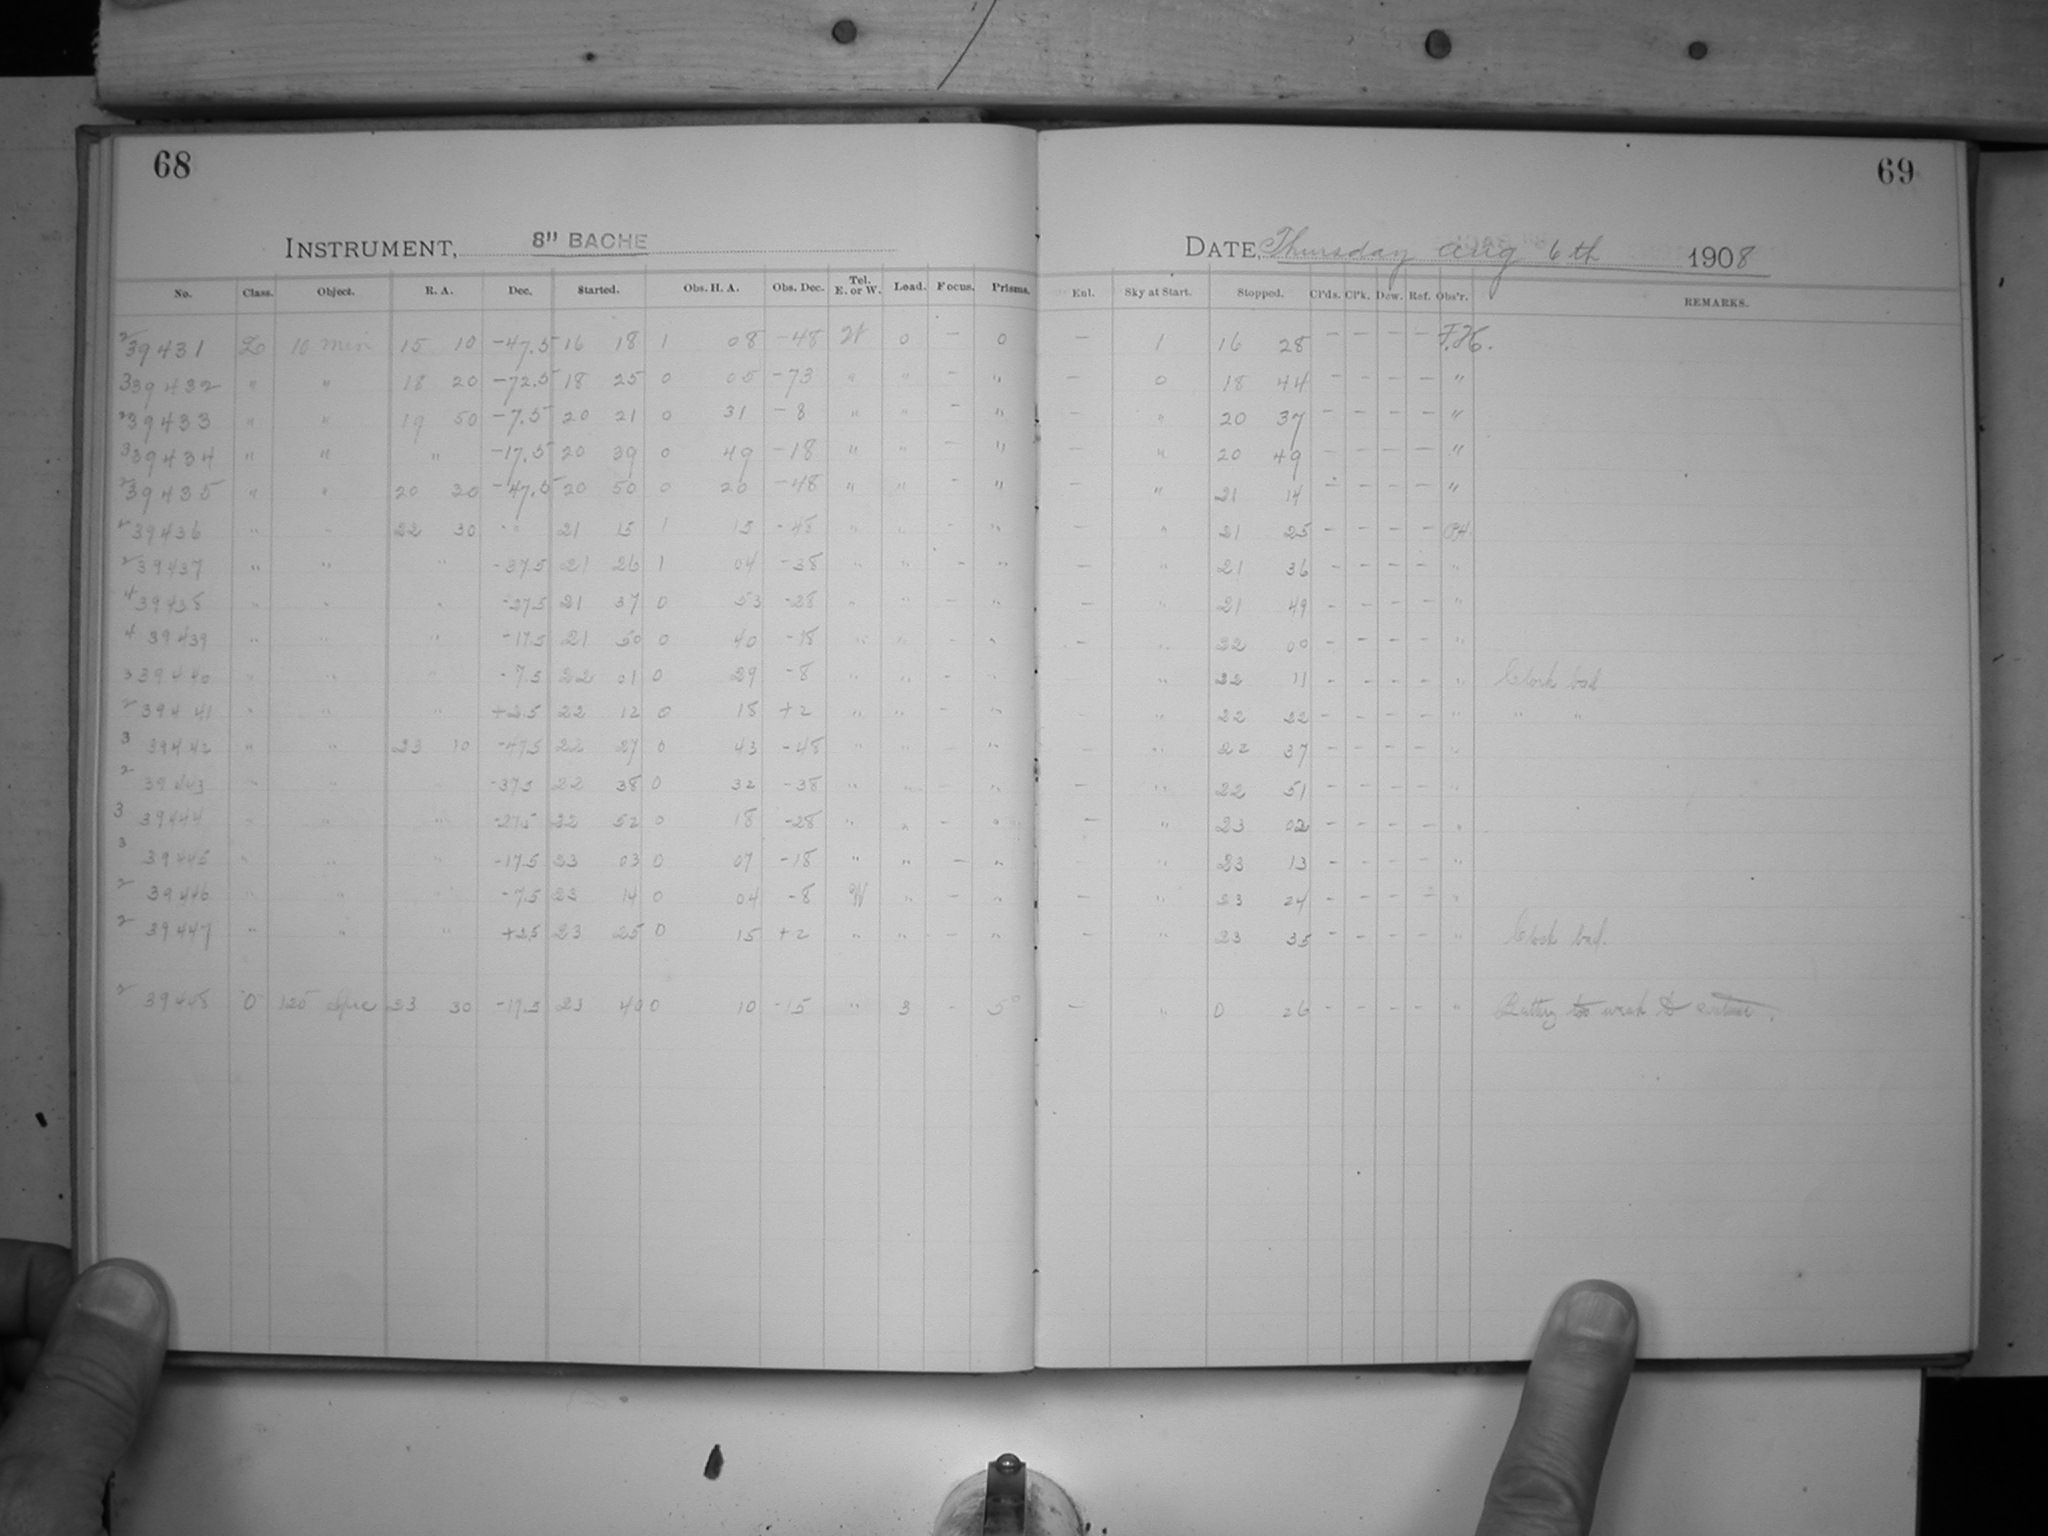 68
69
INSTRUMENT, 8" BACHE
DATE, Thursday Aug 6th 1908
No. Class. Object. R. A. Dec. Started. Obs. H. A. Obs. Dec. Tel. E. or W. Load. Focus. Prisms. Enl. Sky at Start. Stopped. Cl'ds. Cl'k. Dew. Ref. Obs'r. REMARKS.
2 39431 10 min 15 10 -47.5 16 18 1 08 -48 W 0 - 0 - 1 16 28 - - - -
3 39432 " " 18 20 -72.5 18 25 0 05 -73 " " - " - 0 18 44 - - - - "
39433 " " 19 50 -7.5 20 21 0 31 -8 " " - " - " 20 37 - - - - "
3 39434 " " " -17.5 20 39 0 49 -18 " " - " - " 20 49 - - - - "
2 39435 " " 20 30 -47.5 20 50 0 20 -48 " " - " - " 21 14 - - - - "
2 39436 " " 22 30 " 21 15 1 15 -48 " " - " - " 21 25 - - - -
2 39437 " " " -37.5 21 26 1 04 -38 " " - " - " 21 36 - - - - "
4 39438 " " " -27.5 21 37 0 53 -28 " " - " - " 21 49 - - - - "
4 39439 " " " -17.5 21 50 0 40 -18 " " - " - " 22 00 - - - - "
3 39440 " " " -7.5 22 01 0 29 -8 " " - " - " 22 11 - - - - " Clock bad
2 39441 " " " +2.5 22 12 0 18 +2 " " - " - " 22 22 - - - - " " "
3 39442 " " 23 10 -47.5 22 27 0 43 -48 " " - " - " 22 37 - - - - "
2 39443 " " " -37.5 22 38 0 32 -38 " " - " - " 22 51 - - - - "
3 39444 " " " -27.5 22 52 0 18 -28 " " - " - " 23 02 - - - - "
3 39445 " " " -17.5 23 03 0 07 -18 " " - " - " 23 13 - - - - "
2 39446 " " " -7.5 23 14 0 04 -8 W " - " - " 23 24 - - - - "
2 39447 " " " +2.5 23 25 0 15 +2 " " - " - " 23 35 - - - - " Clock bad.
2 39448 O 125 Spec 23 30 -17.5 23 40 0 10 -15 " 3 - 5° - " 0 26 - - - - " Battery too weak to